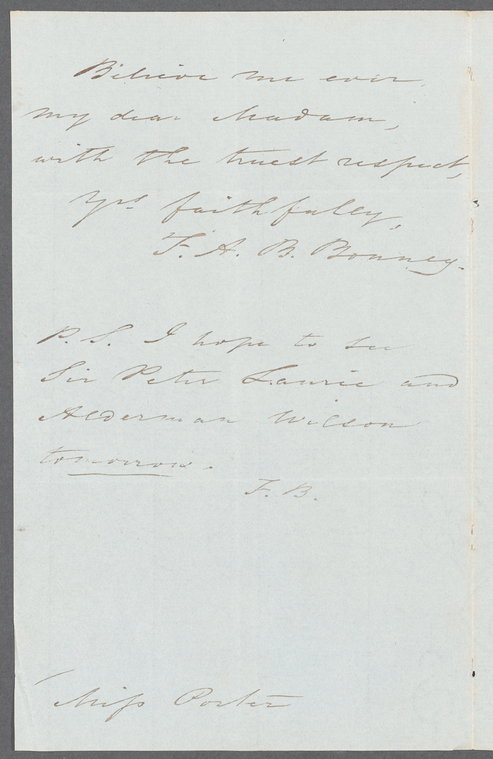 Believe me ever
my dear Madam,
with the truest respect,
Yrs faithfully,
F. A. B. Bonney.
P.S. I hope to see
Sir Peter Laurie and
Alderman Wilson
tomorrow.
F. B.
Miss Porter